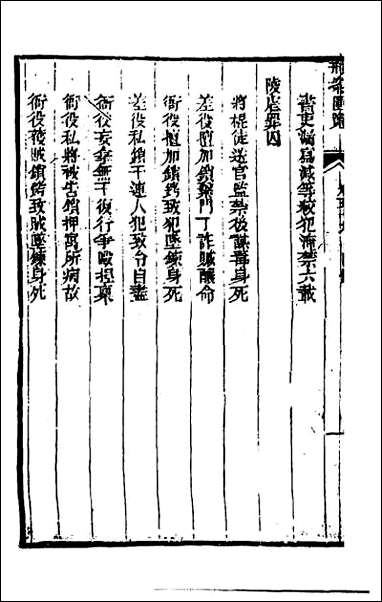 刑案匯覽
書吏漏寫減等絞犯淹禁六載
陵虐罪囚
將棍徒送官監禁後謀毒身死
差役擅加鎖鍊門丁詐贓釀命
衙役擅加鎖銬致犯墜鍊身死
差役私鎖干連人犯致令自盡
衙役妄拿無干復行爭毆捏稟
衙役私將被告鎖押寓所病故
衙役獲賊鎖銬致賊墜鍊身死